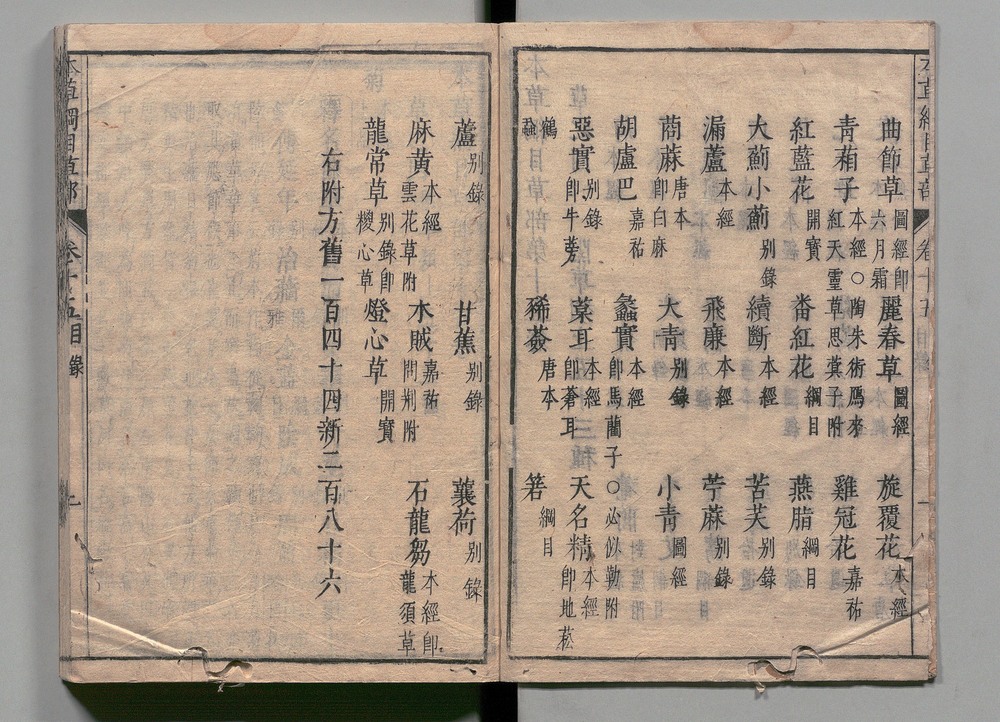 本草綱目草部 卷十五目錄 一
曲節草 圖經即六月霜 麗春草 圖經 旋覆花 本經
青葙子 本經○陶朱術鴈來紅天靈草思蓂子附 雞冠花 嘉祐
紅藍花 開寶 番紅花 綱目 燕脂 綱目
大薊小薊 別錄 續斷 本經 苦芙 別錄
漏蘆 本經 飛廉 本經 苧蔴 別錄
䔛蔴 唐本即白麻 大青 別錄 小青 圖經
胡盧巴 嘉祐 蠡實 本經即馬藺子○必似勒附
惡實 別錄即牛蒡 葈耳 本經即蒼耳 天名精 本經即地菘
鶴蝨 豨薟 唐本 箬 綱目
蘆 別錄 甘蕉 別錄 蘘荷 別錄
麻黃 本經雲花草附 木賊 嘉祐問荆附 石龍芻 本經即龍須草
龍常草 別錄即稷心草 燈心草 開寶
右附方舊一百四十四新二百八十六
本草綱目草部 卷十五目錄 一